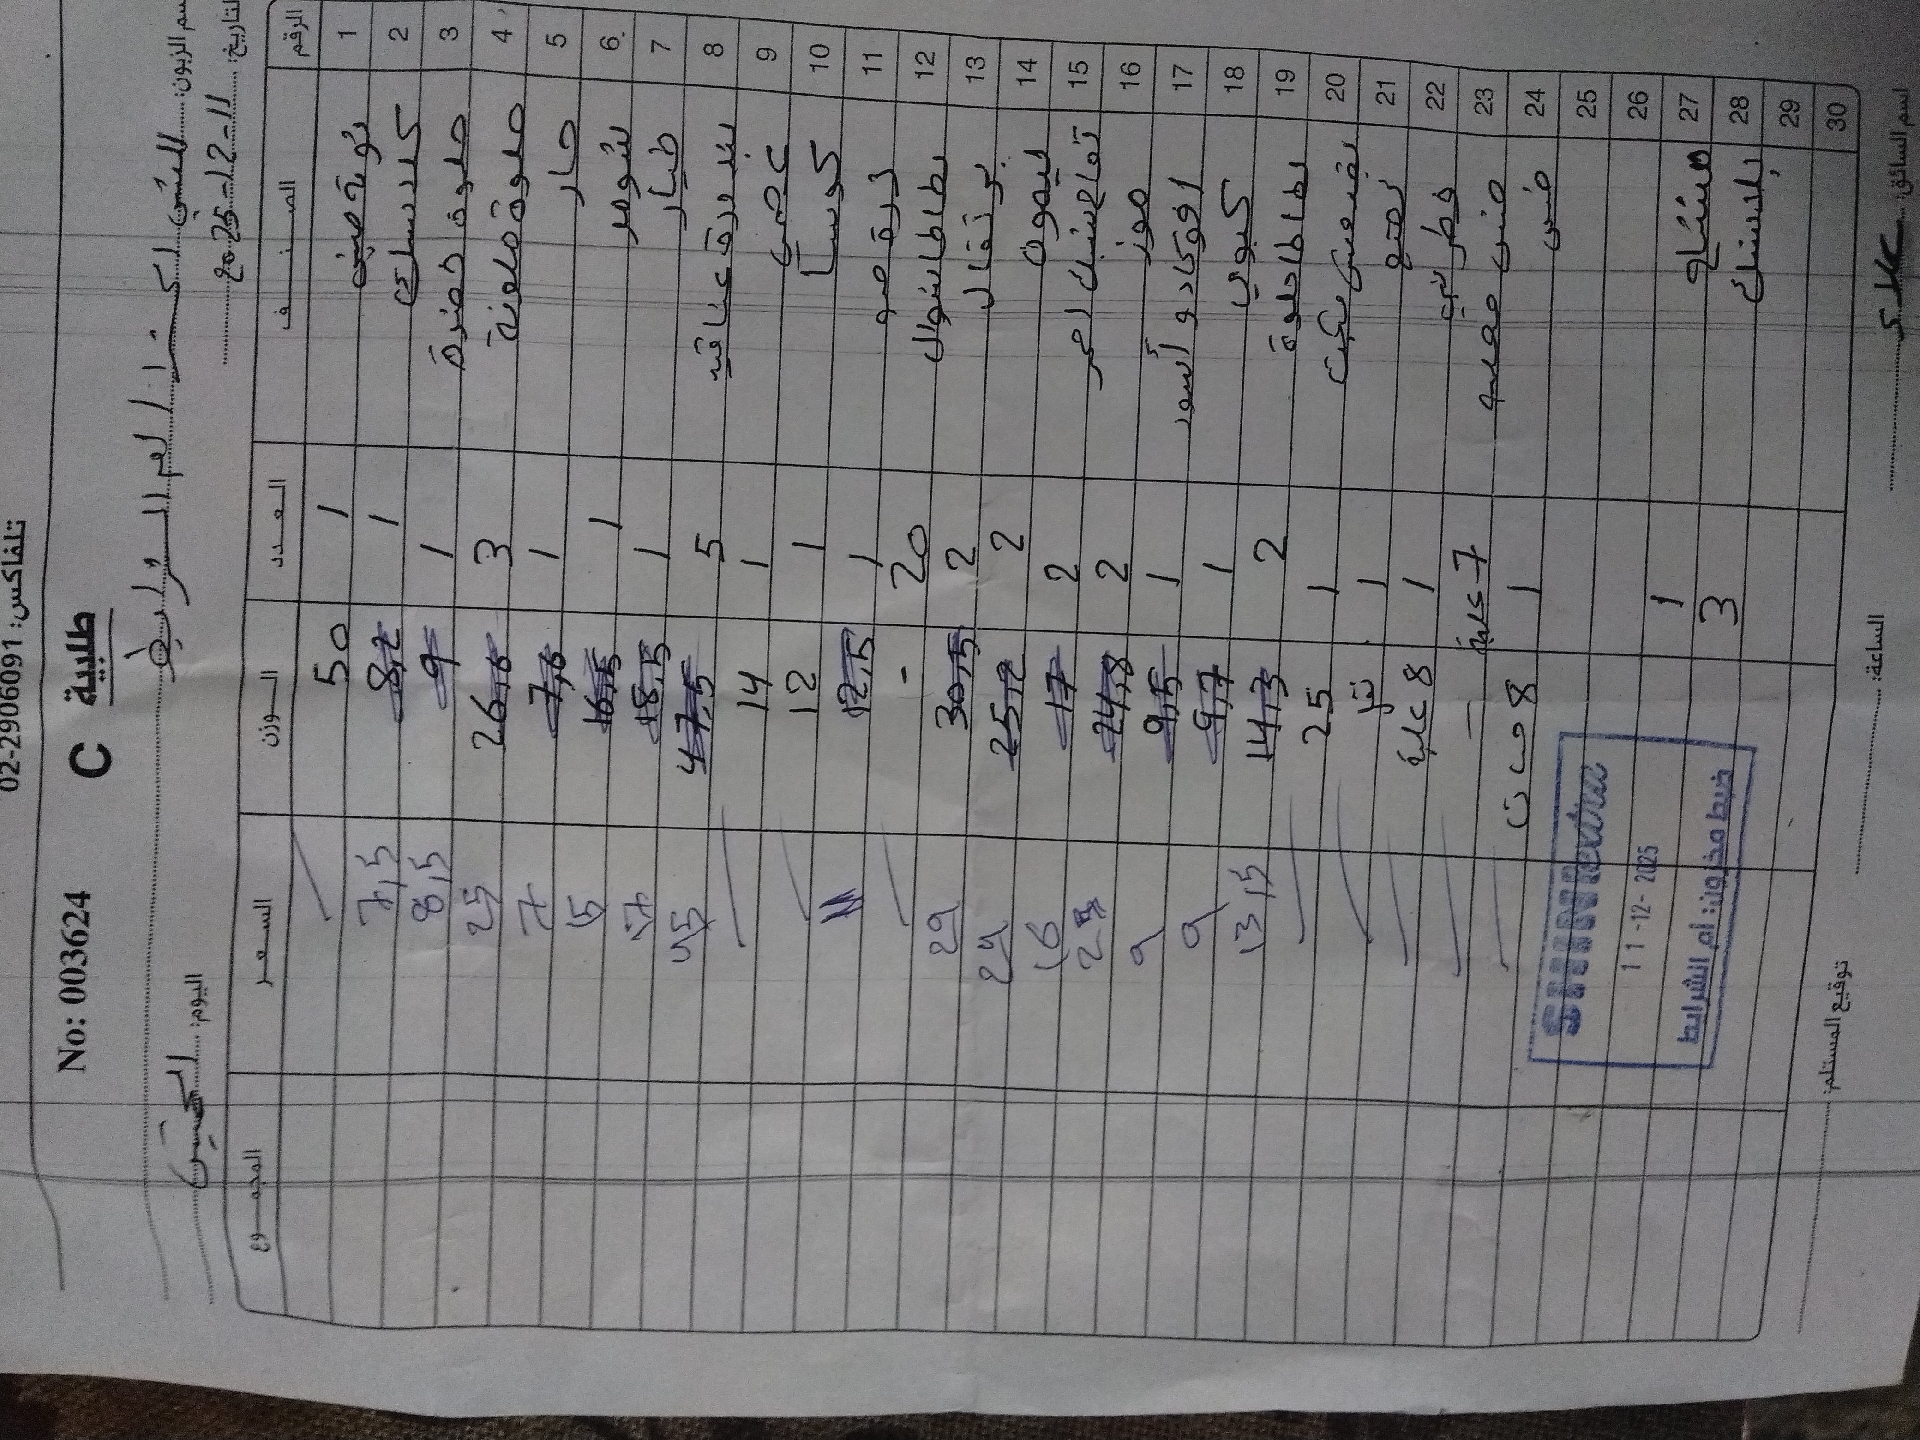 تلفاكس: 02-2906091
No: 003624 C طلبية
اسم الزبون: الشني اكسترا ام الشرايط
التاريخ: 2025-12-11 اليوم: الخميس
الرقم الصنف العدد الوزن السعر المجموع
1 1 50
2 1 8,2 7,5
3 ملوفة خضرة 1 9 8,5
4 ملوفة ملونة 3 26,6 25
5 حار 1 7,6 7
6 شومر 1 16,5 15
7 خيار 1 18,5 17
8 بندورة عناقيد 5 47,5 45
9 1 14
10 كوسا 1 12
11 ذرة 1 12,5
12 بطاطا شوال 20 -
13 برتقال 2 30,5 29
14 ليمون 2 25,2 24
15 تفاح سنبل احمر 2 17 16
16 موز 2 24,8
17 افوكادو أسود 1 9,5 9
18 كيوي 1 9,7 9
19 بطاطا حلوة 2 14,3 13,5
20 1 25
21 نعنع 1
22 فطر 1 8 علبة
23 خس 7 علبة -
24 خس 1 8
25
26
27 مشتاح 1
28 بلاستيك 3
29
30
SHINI extra
11-12-2025
ضبط مخزون: أم الشرايط
اسم السائق: عدي الساعة: توقيع المستلم: